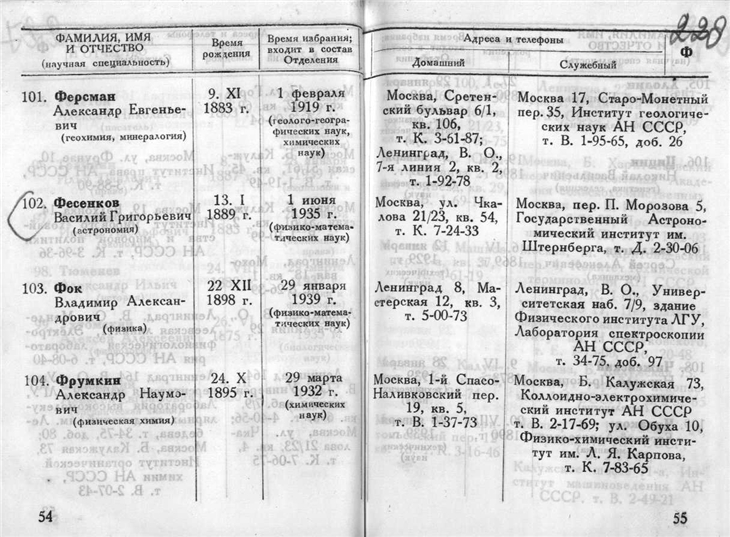 ФАМИЛИЯ, ИМЯ
И ОТЧЕСТВО
(научная специальность)
Время
рождения
Время избрания;
входит в состав
Отделения
101. Ферсман
Александр Евгенье-
вич
(геохимия, минералогия)
9. XI
1883 г.
1 февраля
1919 г.
(геолого-геогра-
фических наук,
химических
наук)
102. Фесенков
Василий Григорьевич
(астрономия)
13. I
1889 г.
1 июня
1935 г.
(физико-матема-
тических наук)
103. Фок
Владимир Алексан-
дрович
(физика)
22 XII
1898 г.
29 января
1939 г.
(физико-матема-
тических наук)
104. Фрумкин
Александр Наумо-
вич
(физическая химия)
24. X
1895 г.
29 марта
1932 г.
(химических
наук)
54
228
Адреса и телефоны
Ф
Домашний
Служебный
Москва, Сретен-
ский бульвар 6/1,
кв. 106,
т. К. 3-61-87;
Ленинград, В. О.,
7-я линия 2, кв. 2,
т. 1-92-78
Москва 17, Старо-Монетный
пер. 35, Институт геологиче-
ских наук АН СССР,
т. В. 1-95-65, доб. 26
Москва, ул. Чка-
лова 21/23, кв. 54,
т. К. 7-24-33
Москва, пер. П. Морозова 5,
Государственный Астроно-
мический институт им.
Штернберга, т. Д. 2-30-06
Ленинград 8, Ма-
стерская 12, кв. 3,
т. 5-00-73
Ленинград, В. О., Универ-
ситетская наб. 7/9, здание
Физического института ЛГУ,
Лаборатория спектроскопии
АН СССР,
т. 34-75, доб. 97
Москва, 1-й Спасо-
Наливковский пер.
19, кв. 5,
т. В. 1-37-73
Москва, Б. Калужская 73,
Коллоидно-электрохимиче-
ский институт АН СССР
т. В. 2-17-69; ул. Обуха 10,
Физико-химический инсти-
тут им. Л. Я. Карпова,
т. К. 7-83-65
55